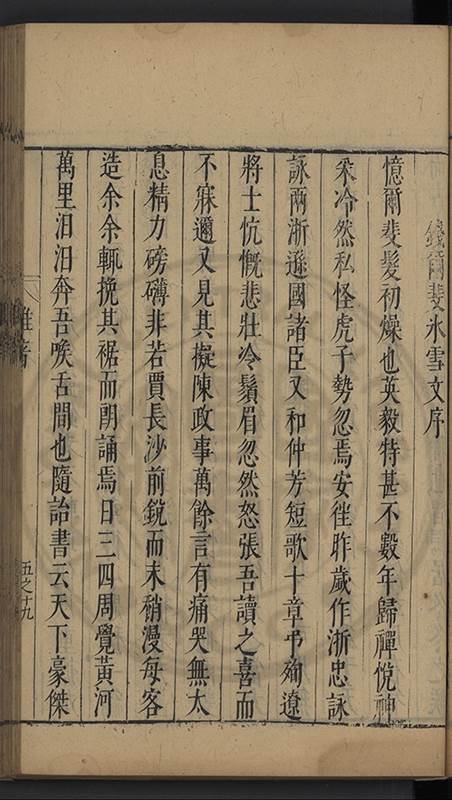 錢爾斐氷雪文序
憶爾斐髮初燥也英毅特甚不數年歸禪悅神
采冷然私怪虎子勢忽焉安徃昨歲作浙忠詠
詠兩浙遜國諸臣又和仲芳短歌十章弔殉遼
將士忼慨悲壯冷鬚眉忽然怒張吾讀之喜而
不寐邇又見其擬陳政事萬餘言有痛哭無太
息精力磅礴非若賈長沙前銳而末稍漫每客
造余余輒挽其裾而朗誦焉日三四周覺黃河
萬里汨汨奔吾喉舌間也隨詒書云天下豪傑
雜著
五之十九